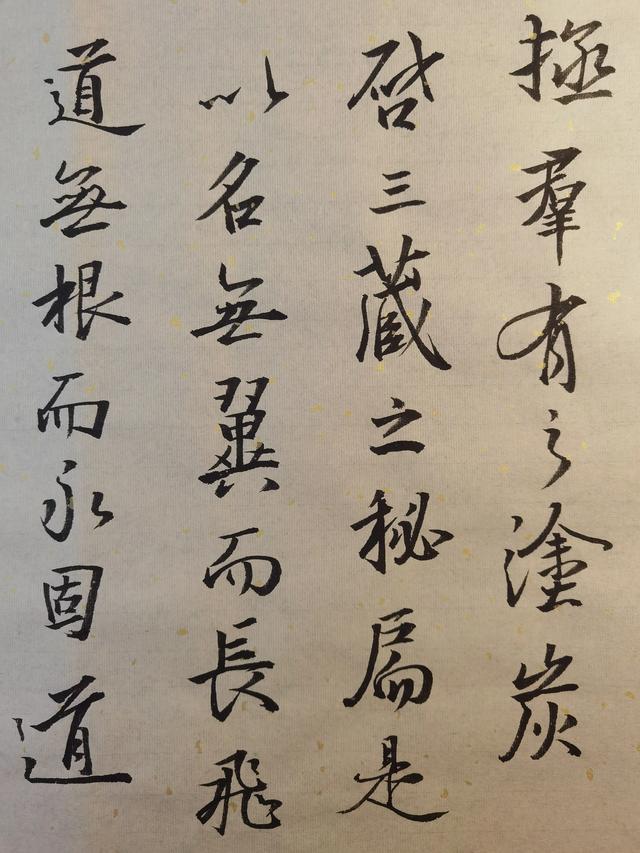 拯羣有之塗炭
啓三藏之秘扃是
以名無翼而長飛
道無根而永固道